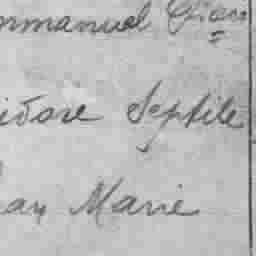 mmanuel
idore Septile
an Marie